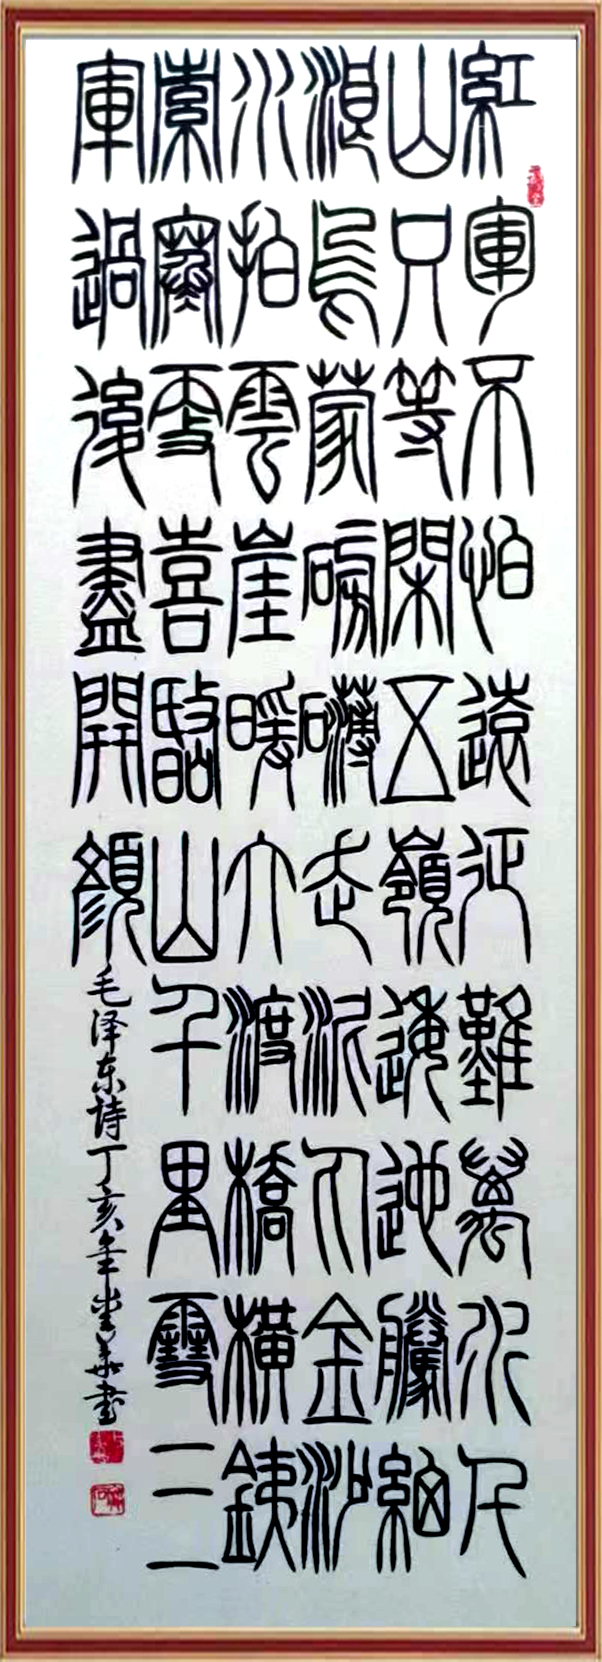 紅軍不怕遠征難萬水千
山只等閑五嶺逶迤騰細
浪烏蒙磅礴走泥丸金沙
水拍雲崖暖大渡橋橫銕
索寒更喜岷山千里雪三
軍過後盡開顏
毛泽东诗丁亥年书